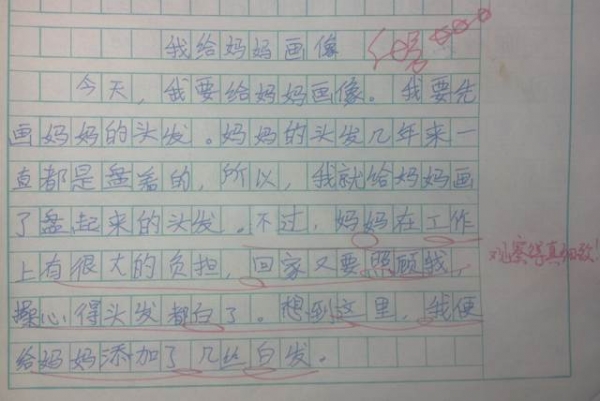 我给妈妈画像
今天，我要给妈妈画像。我要先
画妈妈的头发。妈妈的头发几年来一
直都是盘着的，所以，我就给妈妈画
了盘起来的头发。不过，妈妈在工作
上有很大的负担，回家又要照顾我，
操心得头发都白了。想到这里，我便
给妈妈添加了几丝白发。
观察得真细致！